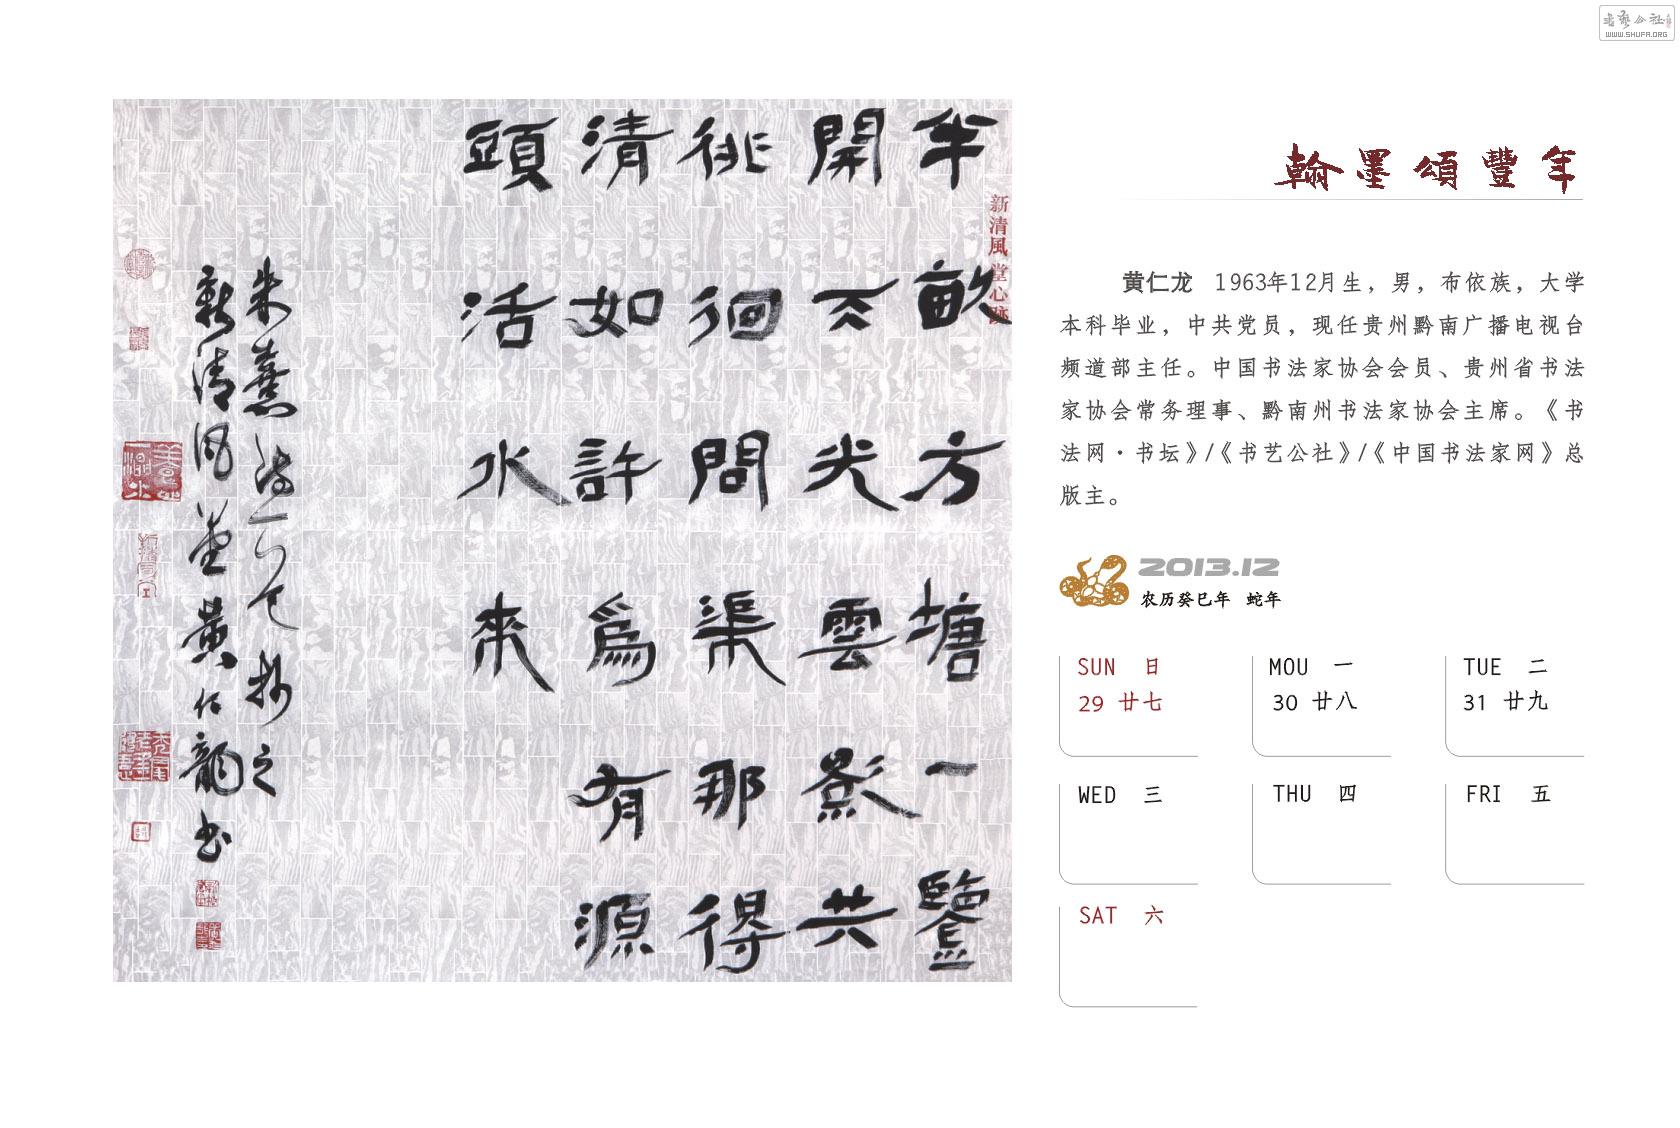 書藝公社
WWW.SHUFA.ORG
翰墨頌豐年
半畝方塘一鑒
開天光雲影共
徘徊問渠那得
清如許為有源
頭活水來
朱熹詩一首 抄之
新清風堂黃仁龍書
新清風堂心跡
黄仁龙 1963年12月生，男，布依族，大学
本科毕业，中共党员，现任贵州黔南广播电视台
频道部主任。中国书法家协会会员、贵州省书法
家协会常务理事、黔南州书法家协会主席。《书
法网·书坛》/《书艺公社》/《中国书法家网》总
版主。
2013.12
农历癸巳年 蛇年
SUN 日
29 廿七
MOU 一
30 廿八
TUE 二
31 廿九
WED 三
THU 四
FRI 五
SAT 六